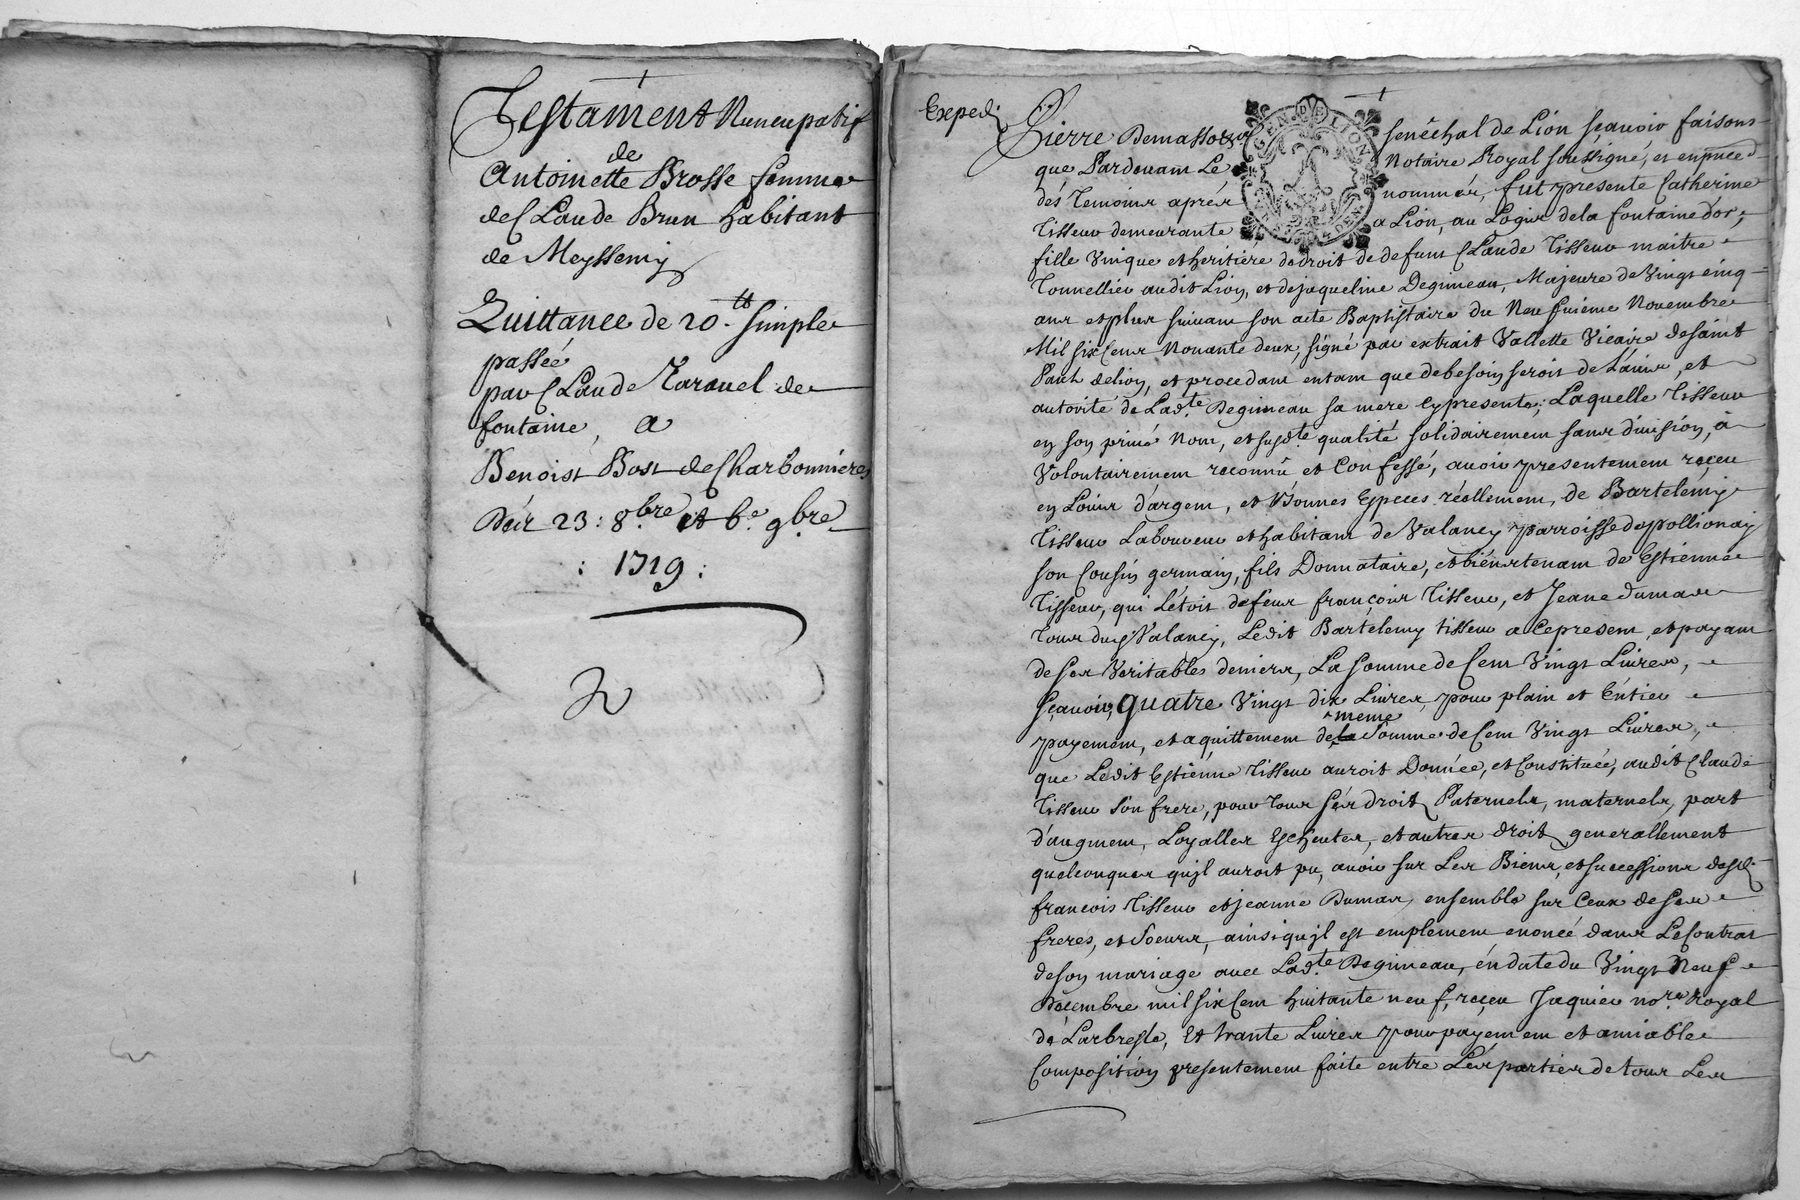 Testament Nuncupatif
de
Antoinette Brosse femme
de Claude Brun habitant
de Meyssemy
Quittance de 20.tt simple
passée
par Claude Taravel de
fontaine, a
Benoist Bost de Charbonnieres
Des 23: 8.bre et 6.e 9.bre
: 1719 :
Expedi
Pierre Demasso
senéchal de Lion sçavoir faisons
que Pardevant Le
Notaire Royal soussigné, et en
dés Temoins aprés
nommés, fut presente Catherine
Tisseur demeurante
a Lion, au Logis de la fontaine d'or,
GEN. DE LION
fille Unique et heritiere de droit de defunt Claude Tisseur maitre
Tonnellier audit Lion, et de Jaqueline Degimeau, Majeure de Vingt cinq
ans et plus suivant son acte Baptistaire du Neufuieme Novembre
Mil six Cens Nonante deux, signé par extrait Vallette Vicaire de saint
Paul de lion, et procedant entant que de besoin seroit de L'avis, et
autorité de Lad.te Degimeau sa mere cy presente; Laquelle Tisseur
en son privé Nom, et susd.te qualité solidairement sans division, à
Volontairement reconnû et Confessé, avoir presentement reçeu
en Loüis d'argent, et Bonnes Especes réellement, de Bartelémy
Tisseur Laboureur et habitant de Valancy parroisse de pollionay
son Cousin germain, fils Donnataire, et biéntenant de Estienne
Tisseur, qui L'étoit defeus françois Tisseur, et Jeane dumas
Tous dud Valancy, Ledit Bartelemy tisseur a ce present, et payant
de ses Veritables deniers, La somme de Cent Vingt Livres,
sçavoir, quatre Vingt dix Livres pour plain et Entier
meme
payement, et aquittement de la Somme de Cent Vingt Livres,
que Ledit Estiénne Tisseur auroit Donnée, et Constituée, audit Claude
Tisseur son frere, pour tous sés droit Paternels, maternels, part
d'augment, Loyalles Escheutes, et autres droit generallement
quelconques qu'il auroit pu, avoir sur Les Biens, et successions desd
francois Tisseur et jeanne Dumas, ensemble sur Ceux de ses
freres, et Soeurs, ainsi qu'il est emplement enoncé dans Le Contrat
de son mariage avec Lad.te Degimeau, én date du Vingt Neuf
Decembre mil six Cent huitante neuf, reçeu Jaquier no.re Royal
dé Larbresle, Et trante Livres pour payement et amiable
Composition presentement faite entre Lés parties de tous Les